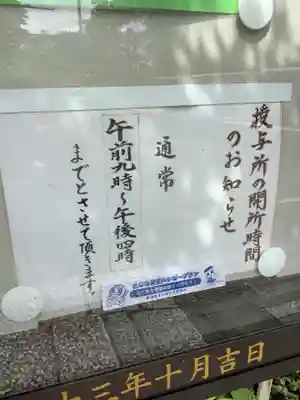 授与所の開所時間
のお知らせ
通常
午前九時～午後四時
までとさせて頂きます。
三年十月吉日